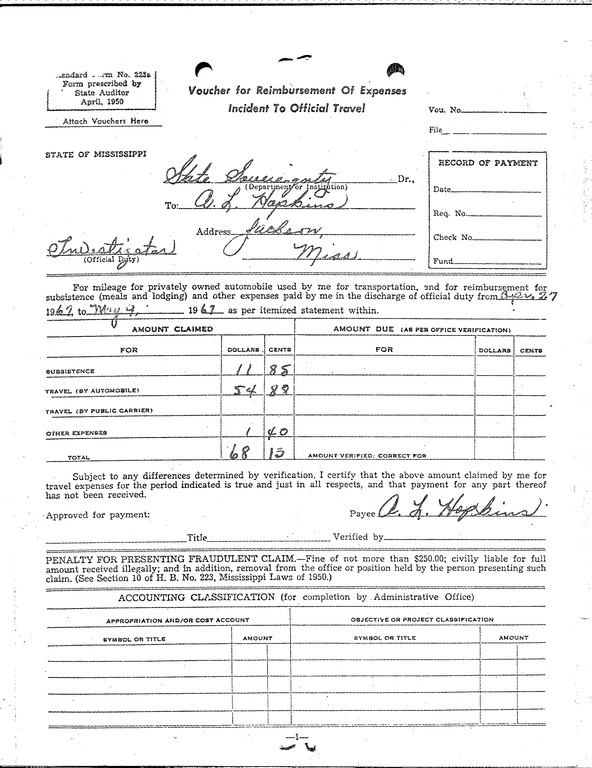 Form No. 223a
Form prescribed by
State Auditor
April, 1950
Attach Vouchers Here
Voucher for Reimbursement Of Expenses
Incident To Official Travel
Vou. No.
File
STATE OF MISSISSIPPI
State Sovereignty Dr.,
(Department or Institution)
To: A. L. Hopkins
Address Jackson,
Miss.
Investigator
(Official Duty)
RECORD OF PAYMENT
Date
Req. No.
Check No.
Fund
For mileage for privately owned automobile used by me for transportation, and for reimbursement for
subsistence (meals and lodging) and other expenses paid by me in the discharge of official duty from 27
1967, to May 9, 1967 as per itemized statement within.
AMOUNT CLAIMED AMOUNT DUE (AS PER OFFICE VERIFICATION)
FOR DOLLARS CENTS FOR DOLLARS CENTS
SUBSISTENCE 11 85
TRAVEL (BY AUTOMOBILE) 54 88
TRAVEL (BY PUBLIC CARRIER)
OTHER EXPENSES 1 40
TOTAL 68 13 AMOUNT VERIFIED: CORRECT FOR
Subject to any differences determined by verification, I certify that the above amount claimed by me for
travel expenses for the period indicated is true and just in all respects, and that payment for any part thereof
has not been received.
Approved for payment: Payee A. L. Hopkins
Title Verified by
PENALTY FOR PRESENTING FRAUDULENT CLAIM.—Fine of not more than $250.00; civilly liable for full
amount received illegally; and in addition, removal from the office or position held by the person presenting such
claim. (See Section 10 of H. B. No. 223, Mississippi Laws of 1950.)
ACCOUNTING CLASSIFICATION (for completion by Administrative Office)
APPROPRIATION AND/OR COST ACCOUNT OBJECTIVE OR PROJECT CLASSIFICATION
SYMBOL OR TITLE AMOUNT SYMBOL OR TITLE AMOUNT
—1—